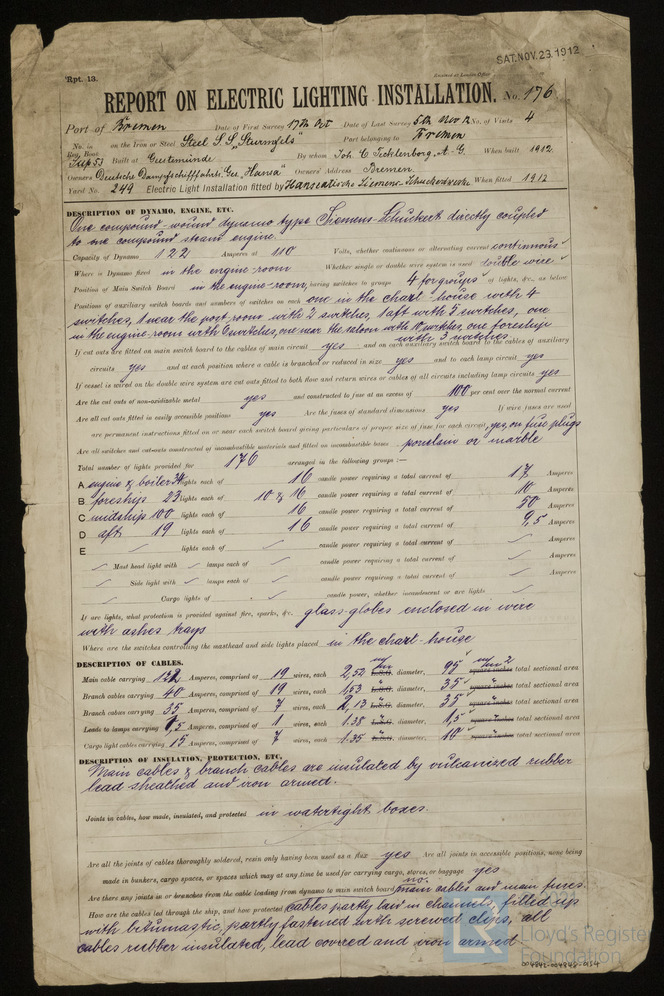 SAT. NOV. 23. 1912
Rpt. 13.
Received at London Office
REPORT ON ELECTRIC LIGHTING INSTALLATION. No. 176
Port of Bremen Date of First Survey 17th Oct Date of Last Survey 5th Nov 12 No. of Visits 4
No. in Reg. Book Sup 53 on the Iron or Steel Steel S.S. "Sturmfels" Port belonging to Bremen
Built at Geestemünde By whom Joh. C. Tecklenborg, A-G. When built 1912
Owners Deutsche Dampfschifffahrts-Ges. "Hansa" Owners' Address Bremen
Yard No. 249 Electric Light Installation fitted by Hanseatische Siemens-Schuckertwerke When fitted 1912
DESCRIPTION OF DYNAMO, ENGINE, ETC.
One compound-wound dynamo type Siemens-Schuckert directly coupled
to one compound steam engine.
Capacity of Dynamo 122 Amperes at 110 Volts, whether continuous or alternating current continuous
Where is Dynamo fixed in the engine-room Whether single or double wire system is used double wire
Position of Main Switch Board in the engine-room, having switches to groups 4 for groups of lights, &c., as below
Positions of auxiliary switch boards and numbers of switches on each one in the chart-house with 4
switches, 1 near the port-room with 2 switches, 1 aft with 5 switches, one
in the engine-room with 6 switches, one near the saloon with 10 switches, one foreship
with 3 switches
If cut outs are fitted on main switch board to the cables of main circuit yes and on each auxiliary switch board to the cables of auxiliary
circuits yes and at each position where a cable is branched or reduced in size yes and to each lamp circuit yes
If vessel is wired on the double wire system are cut outs fitted to both flow and return wires or cables of all circuits including lamp circuits yes
Are the cut outs of non-oxidizable metal yes and constructed to fuse at an excess of 100 per cent over the normal current
Are all cut outs fitted in easily accessible positions yes Are the fuses of standard dimensions yes If wire fuses are used
are permanent instructions fitted on or near each switch board giving particulars of proper size of fuse for each circuit yes, on fuse plugs
Are all switches and cut-outs constructed of incombustible materials and fitted on incombustible bases porcelain or marble
Total number of lights provided for 176 arranged in the following groups :—
A engine & boiler 34 lights each of 16 candle power requiring a total current of 17 Amperes
B foreship 23 lights each of 10 & 16 candle power requiring a total current of 10 Amperes
C midship 100 lights each of 16 candle power requiring a total current of 50 Amperes
D aft 19 lights each of 16 candle power requiring a total current of 9,5 Amperes
E lights each of candle power requiring a total current of Amperes
Mast head light with lamps each of candle power requiring a total current of Amperes
Side light with lamps each of candle power requiring a total current of Amperes
Cargo lights of candle power, whether incandescent or arc lights
If arc lights, what protection is provided against fire, sparks, &c. glass-globes enclosed in wire
with ashes trays
Where are the switches controlling the masthead and side lights placed in the chart-house
DESCRIPTION OF CABLES.
Main cable carrying 122 Amperes, comprised of 19 wires, each 2,52 m/m L.S.G. diameter, 95 m/m 2 square inches total sectional area
Branch cables carrying 40 Amperes, comprised of 19 wires, each 1,53 " L.S.G. diameter, 35 " square inches total sectional area
Branch cables carrying 35 Amperes, comprised of 7 wires, each 2,13 " L.S.G. diameter, 35 " square inches total sectional area
Leads to lamps carrying 7,5 Amperes, comprised of 1 wires, each 1.38 " L.S.G. diameter, 1,5 " square inches total sectional area
Cargo light cables carrying 15 Amperes, comprised of 7 wires, each 1.35 " L.S.G. diameter, 10 " square inches total sectional area
DESCRIPTION OF INSULATION, PROTECTION, ETC.
Main cables & branch cables are insulated by vulcanized rubber
lead sheathed and iron armed.
Joints in cables, how made, insulated, and protected in watertight boxes.
Are all the joints of cables thoroughly soldered, resin only having been used as a flux yes Are all joints in accessible positions, none being
made in bunkers, cargo spaces, or spaces which may at any time be used for carrying cargo, stores, or baggage yes
Are there any joints in or branches from the cable leading from dynamo to main switch board no. main cables and main fuses
How are the cables led through the ship, and how protected cables partly laid in channels, filled up
with bitumastic, partly fastened with screwed clips, all
cables rubber insulated, lead covered and iron armed
LR Lloyd's Register
Foundation